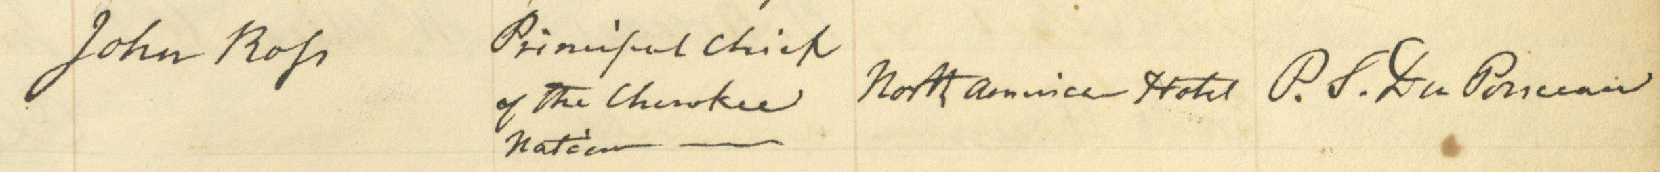 John Ross
Principal Chief
of the Cherokee
Nation
North American Hotel
P. S. Du Ponceau